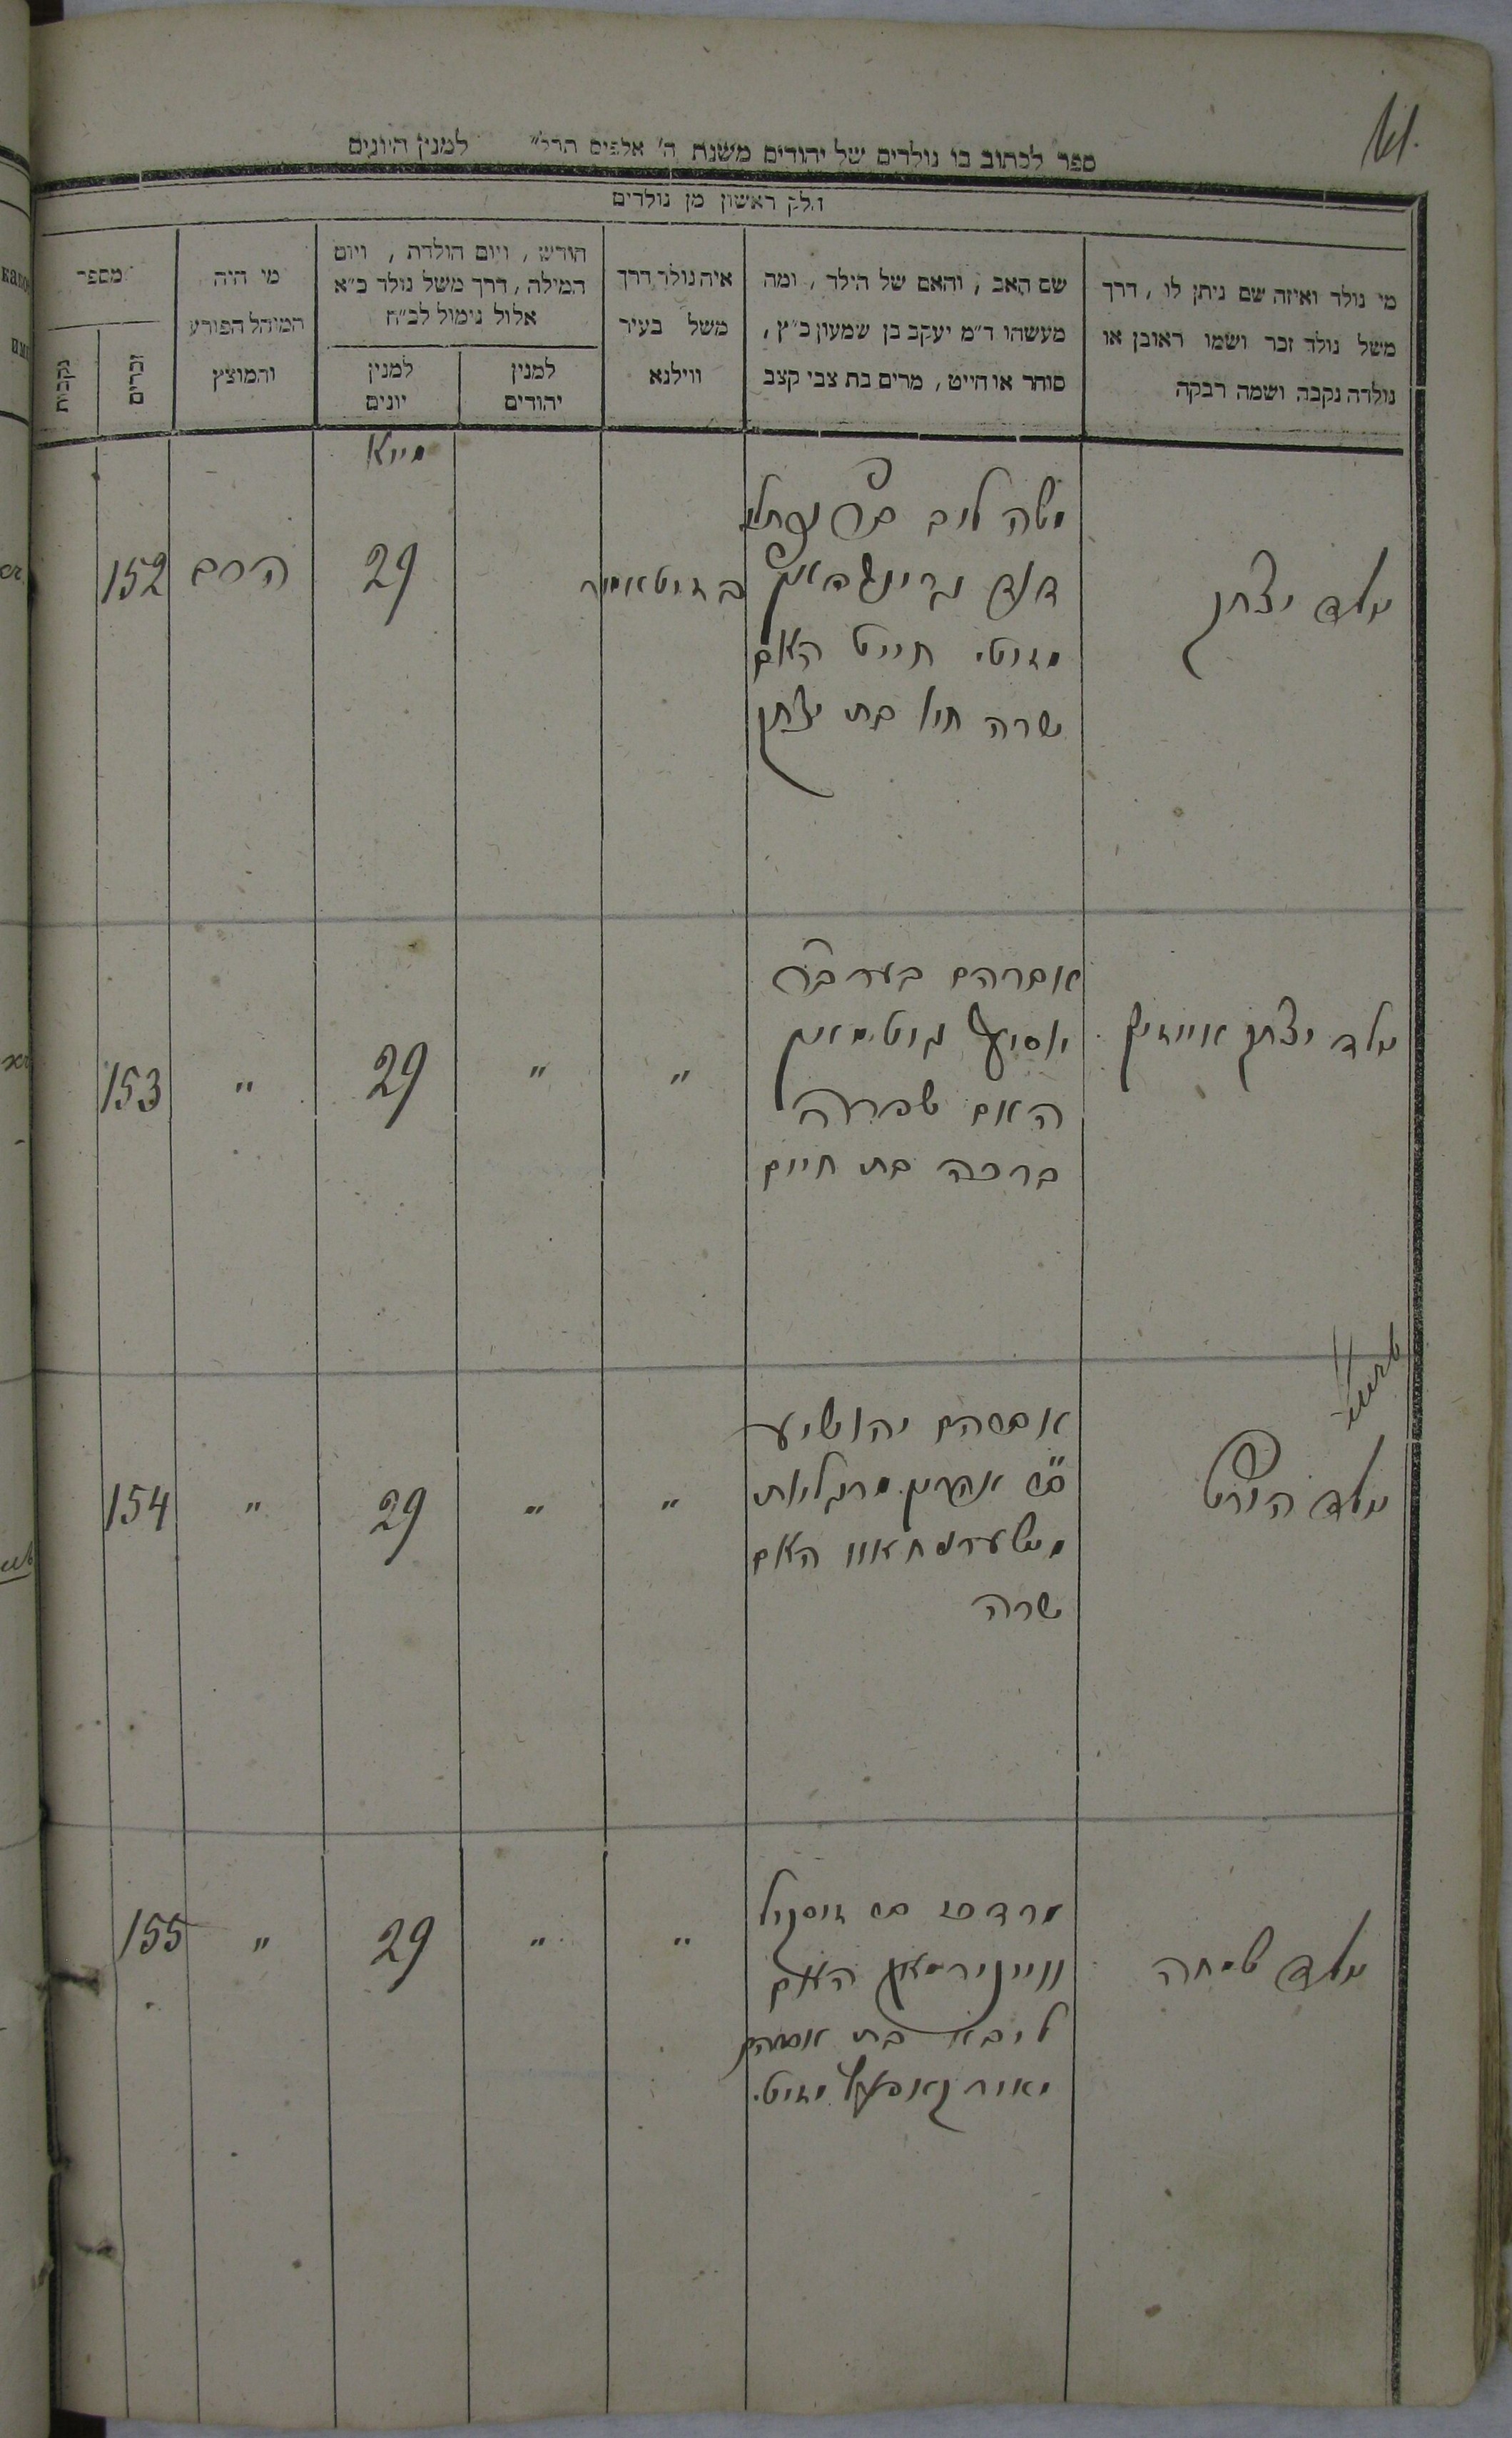 61.
ספר לכתוב בו נולדים של יהודים משנת ה' אלפים תרל" למנין היונים
חלק ראשון מן נולדים
מי נולד ואיזה שם ניתן לו, דרך
משל נולד זכר ושמו ראובן או
נולדה נקבה ושמה רבקה
שם האב, והאם של הילד, ומה
מעשהו ד"מ יעקב בן שמעון כ"ץ,
סוחר או חייט, מרים בת צבי קצב
איה נולד דרך
משל בעיר
ווילנא
חודש, ויום הולדת, ויום
המילה, דרך משל נולד כ"א
אלול נימול לכ"ח
למנין
יהודים
למנין
יונים
מי היה
המוהל הפורע
והמוצץ
מספר
זכרים
נקבות
מייא
נולד יצחק
משה ליב ב"ר נפתלי
דוד גרינבאום
מזיט. חייט האם
שרה חיי בת יצחק
בזיטאמיר
29
הרב
152
נולד יצחק אייזיק
אברהם בער ב"ר
יוסיף גוטמאן
האם שפרה
ברכה בת חיים
"
"
29
"
153
נולד הירש
אברהם יהושיע
ב"ר אהרון מרגליות
האם
שרה
"
"
29
"
154
נולד שמחה
מרדכי בר זיסקיל
ווייינירמאן האם
ליבא בת אברהם
מזיט.
"
"
29
"
155